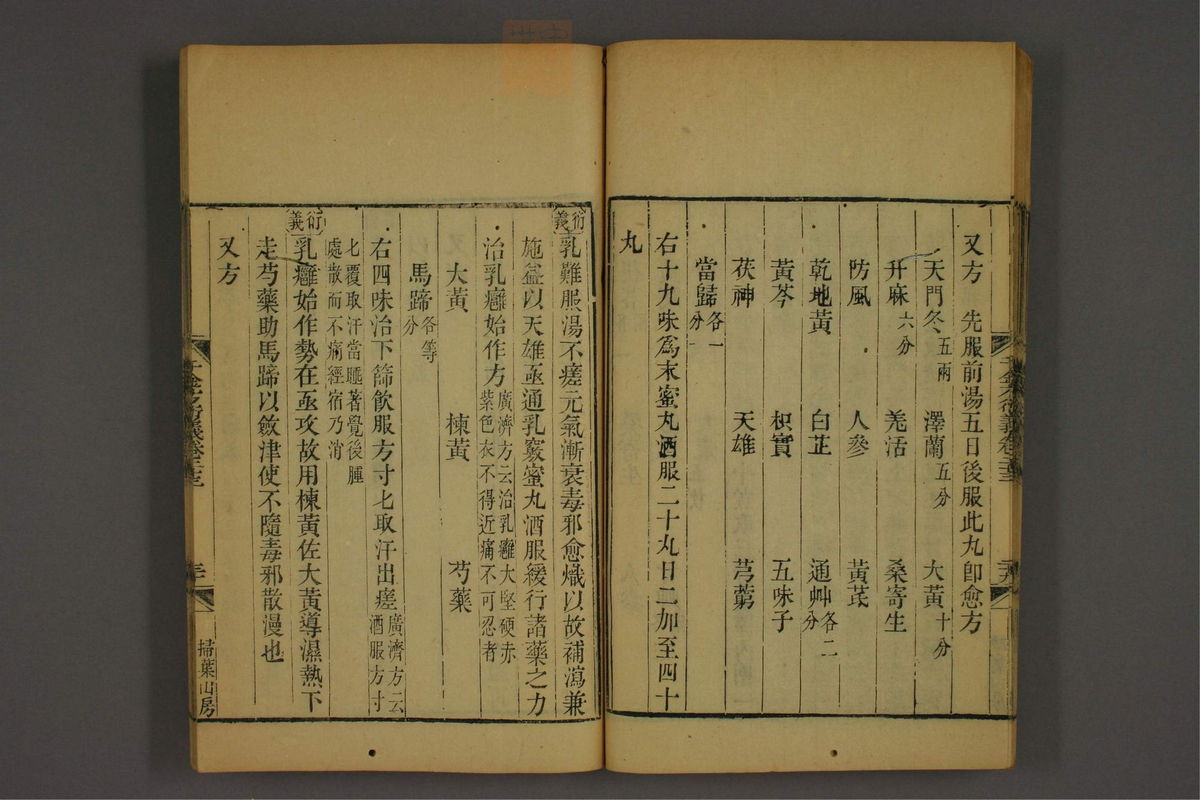 又方　先服前湯五日後服此丸卽愈方
天門冬五兩　澤蘭五分　大黃十分
升麻六分　羌活　桑寄生
防風　人參　黃芪
乾地黃　白芷　通艸各二分
黃芩　枳實　五味子
茯神　天雄　芎藭
當歸各一分
右十九味爲末蜜丸酒服二十丸日二加至四十
丸
衍義
乳難服湯不瘥元氣漸衰毒邪愈熾以故補瀉兼
施益以天雄亟通乳竅蜜丸酒服緩行諸藥之力
治乳癰始作方廣濟方云治乳癰大堅硬赤紫色衣不得近痛不可忍者
大黃　楝黃　芍藥
馬蹄各等分
右四味治下篩飲服方寸匕取汗出瘥廣濟方云酒服方寸
匕覆取汗當睡著覺後腫處散而不痛經宿乃消
衍義
乳癰始作勢在亟攻故用楝黃佐大黃導濕熱下
走芍藥助馬蹄以斂津使不隨毒邪散漫也
又方
掃葉山房